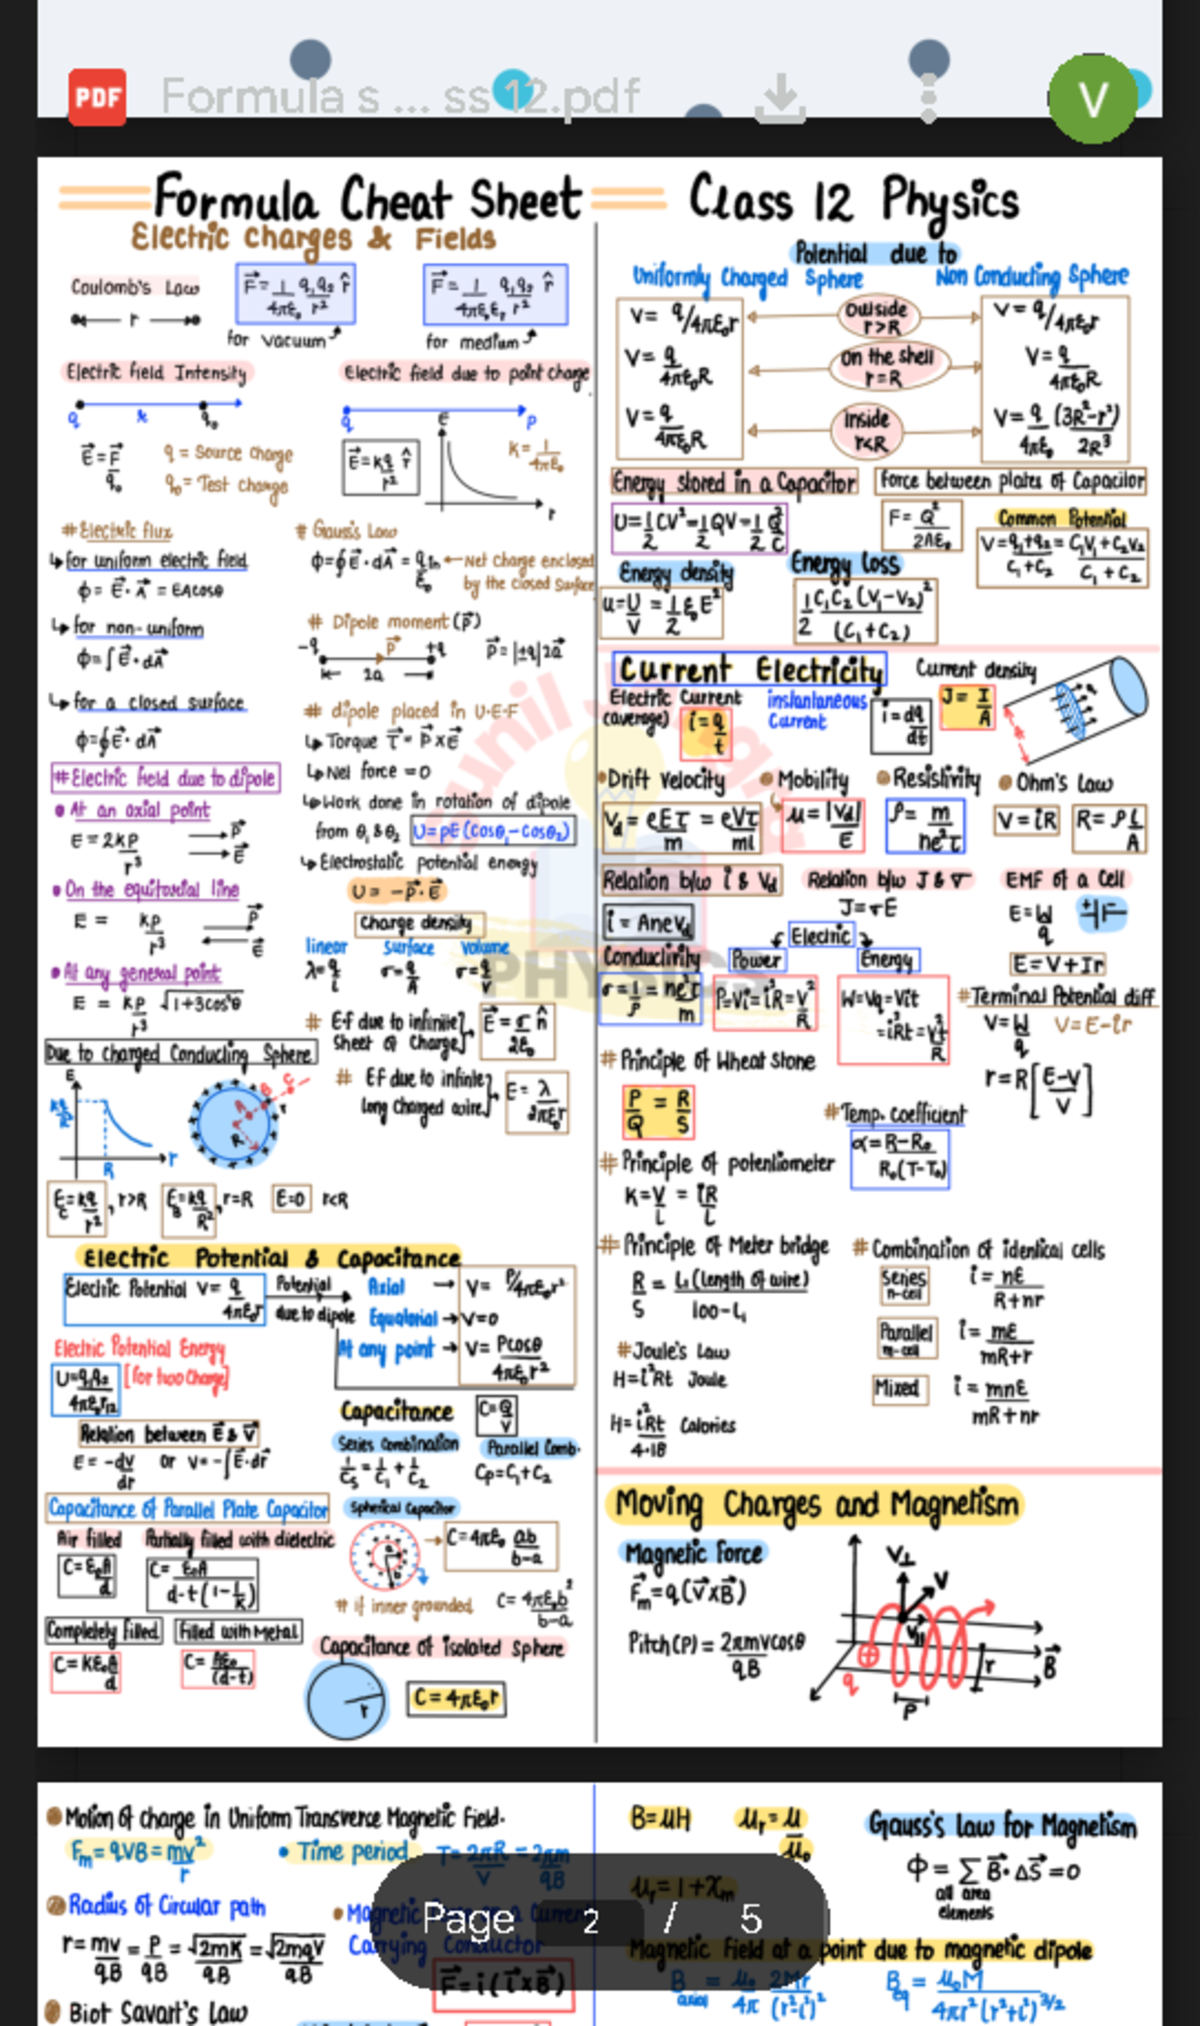 PDF Formula s ... ss 12.pdf V
Formula Cheat Sheet
Class 12 Physics
Electric Charges & Fields
Coulomb's Law
F⃗ = 1/4πε₀ q₁q₂/r² r̂
for vacuum
F⃗ = 1/4πε₀εᵣ q₁q₂/r² r̂
for medium
r
Electric field Intensity
q x q₀
E⃗ = F⃗/q₀
q = Source charge
q₀ = Test charge
Electric field due to point charge
q P
E⃗ = kq/r² r̂
E
r
K = 1/4πε₀
# Electric flux
↳ for uniform electric field
ϕ = E⃗·A⃗ = EAcosθ
↳ for non-uniform
ϕ = ∫E⃗·dA⃗
↳ for a closed surface
ϕ = ∮E⃗·dA⃗
# Electric field due to dipole
• At an axial point
E = 2kP/r³
P⃗
E⃗
• On the equitorial line
E = kp/r³
P⃗
E⃗
• At any general point
E = kp/r³ √1+3cos²θ
Due to charged Conducling Sphere
E
kq/R²
R
r
E_C = kq/r², r>R
E_B = kq/R², r=R
E=0 r<R
# Gauss's Law
ϕ = ∮E⃗·dA⃗ = q_in/ε₀ ← Net Charge enclosed
by the closed surface
# Dipole moment (P⃗)
-q P⃗ +q
2a
P⃗ = |±q|2a⃗
# dipole placed in U·E·F
↳ Torque τ⃗ = P⃗×E⃗
↳ Net force = 0
↳ Work done in rotation of dipole
from θ₁ & θ₂ U = pE (Cosθ₁ - Cosθ₂)
↳ Electrostatic potential energy
U = -P⃗·E⃗
Charge density
linear surface volume
λ = q/L σ = q/A σ = q/V
# E·f due to infinite
Sheet of Charge
E⃗ = σ/2ε₀ n̂
# EF due to infinite
long Charged wire
E = λ/2πε₀r
Electric Potential & Capacitance
Electric Potential V = q/4πε₀r
Potential
due to dipole
Axial → V = P/4πε₀r²
Equatorial → V=0
At any point → V = Pcosθ/4πε₀r²
Electric Potential Energy
U = q₁q₂/4πε₀r₁₂ [for two Charge]
Relation between E⃗ & V⃗
E = -dv/dr or V = -∫E⃗·dr⃗
Capacitance C = Q/V
Series Combination
1/Cs = 1/C₁ + 1/C₂
Parallel Comb.
Cp = C₁ + C₂
Capacitance of Parallel Plate Capacitor
Air filled
C = ε₀A/d
Partially filled with dielectric
C = ε₀A/d-t(1-1/K)
Completely filled
C = Kε₀A/d
Filled with Metal
C = Aε₀/(d-t)
Spherical Capacitor
C = 4πε₀ ab/b-a
# if inner grounded
C = 4πε₀b²/b-a
Capacitance of isolated sphere
r
C = 4πε₀r
Potential due to
Uniformly Charged Sphere
Non Conducting Sphere
V = q/4πε₀r
Outside r>R
V = q/4πε₀r
V = q/4πε₀R
on the shell r=R
V = q/4πε₀R
V = q/4πε₀R
Inside r<R
V = q/4πε₀ (3R²-r²)/2R³
Energy stored in a Capacitor
U = 1/2 CV² = 1/2 QV = 1/2 Q²/C
Force between plates of Capacitor
F = Q²/2Aε₀
Common Potential
V = q₁+q₂/C₁+C₂ = C₁V₁+C₂V₂/C₁+C₂
Energy density
u = U/V = 1/2 ε₀E²
Energy loss
1/2 C₁C₂(V₁-V₂)²/(C₁+C₂)
Current Electricity
Electric Current
(average) i = q/t
instantaneous
Current
i = dq/dt
Current density
J = I/A
Drift Velocity
Vd = eEτ/m = eVτ/ml
Mobility
μ = |Vd|/E
Resistivity
ρ = m/ne²τ
Ohm's Law
V = iR R = ρL/A
Relation b/w i & Vd
i = AneVd
Relation b/w J & σ
J = σE
EMF of a Cell
E = W/q
E = V+Ir
Conductivity
σ = 1/ρ = ne²τ/m
Electric
Power
P = Vi = i²R = V²/R
Energy
W = Vq = Vit
= i²Rt = V²t/R
# Terminal Potential diff
V = W/q V = E-ir
r = R[E-V/V]
# Principle of Wheat stone
P/Q = R/S
# Temp. coefficient
α = R-R₀/R₀(T-T₀)
# Principle of potentiometer
K = V/L = iR/L
# Principle of Meter bridge
R/S = L₁(length of wire)/100-L₁
# Combination of identical cells
Series
n-cell
i = nE/R+nr
Parallel
m-cell
i = mE/mR+r
Mixed
i = mnE/mR+nr
# Joule's Law
H = i²Rt Joule
H = i²Rt/4.18 Calories
Moving Charges and Magnetism
Magnetic Force
F⃗m = q(v⃗×B⃗)
Pitch(P) = 2πmvcosθ/qB
V⊥ V
V∥
q
P
r
B⃗
PHYSICS
Motion of charge in Uniform Transverse Magnetic Field.
Fm = qVB = mv²/r
• Time period T = 2πR/V = 2πm/qB
Radius of Circular path
r = mv/qB = P/qB = √2mK/qB = √2mqV/qB
Carrying Conductor
F⃗ = i(l⃗×B⃗)
Biot Savart's Law
B = μH μᵣ = μ/μ₀
μᵣ = 1+χm
Gauss's Law for Magnetism
ϕ = ΣB⃗·ΔS⃗ = 0
all area
elements
Magnetic Field at a point due to magnetic dipole
B axial = μ₀/4π 2Mr/(r²-l²)²
B eq = μ₀M/4πr²(r²+l²)^3/2
Page 2 / 5